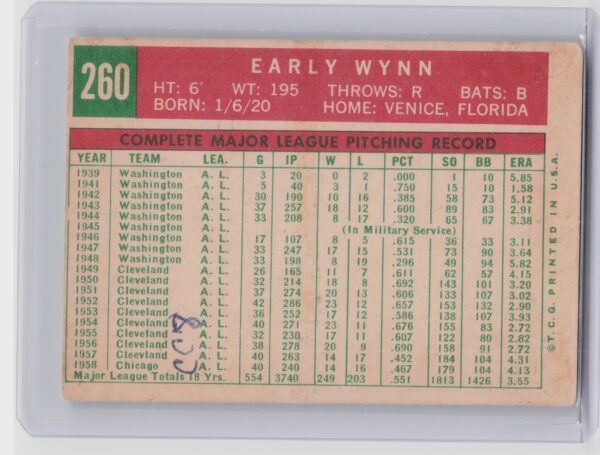 260
EARLY WYNN
HT: 6' WT: 195 THROWS: R BATS: B
BORN: 1/6/20 HOME: VENICE, FLORIDA
COMPLETE MAJOR LEAGUE PITCHING RECORD
YEAR TEAM LEA. G IP W L PCT SO BB ERA
1939 Washington A. L. 3 20 0 2 .000 1 10 5.85
1941 Washington A. L. 5 40 3 1 .750 15 10 1.58
1942 Washington A. L. 30 190 10 16 .385 58 73 5.12
1943 Washington A. L. 37 257 18 12 .600 89 83 2.91
1944 Washington A. L. 33 208 8 17 .320 65 67 3.38
1945 Washington A. L. (In Military Service)
1946 Washington A. L. 17 107 8 5 .615 36 33 3.11
1947 Washington A. L. 33 247 17 15 .531 73 90 3.64
1948 Washington A. L. 33 198 8 19 .296 49 94 5.82
1949 Cleveland A. L. 26 165 11 7 .611 62 57 4.15
1950 Cleveland A. L. 32 214 18 8 .692 143 101 3.20
1951 Cleveland A. L. 37 274 20 13 .606 133 107 3.02
1952 Cleveland A. L. 42 286 23 12 .657 153 132 2.90
1953 Cleveland A. L. 36 252 17 12 .586 138 107 3.93
1954 Cleveland A. L. 40 271 23 11 .676 155 83 2.72
1955 Cleveland A. L. 32 230 17 11 .607 122 80 2.82
1956 Cleveland A. L. 38 278 20 9 .690 158 91 2.72
1957 Cleveland A. L. 40 263 14 17 .452 184 104 4.31
1958 Chicago A. L. 40 240 14 16 .467 179 104 4.13
Major League Totals 18 Yrs. 554 3740 249 203 .551 1813 1426 3.55
©T.C.G. PRINTED IN U.S.A.